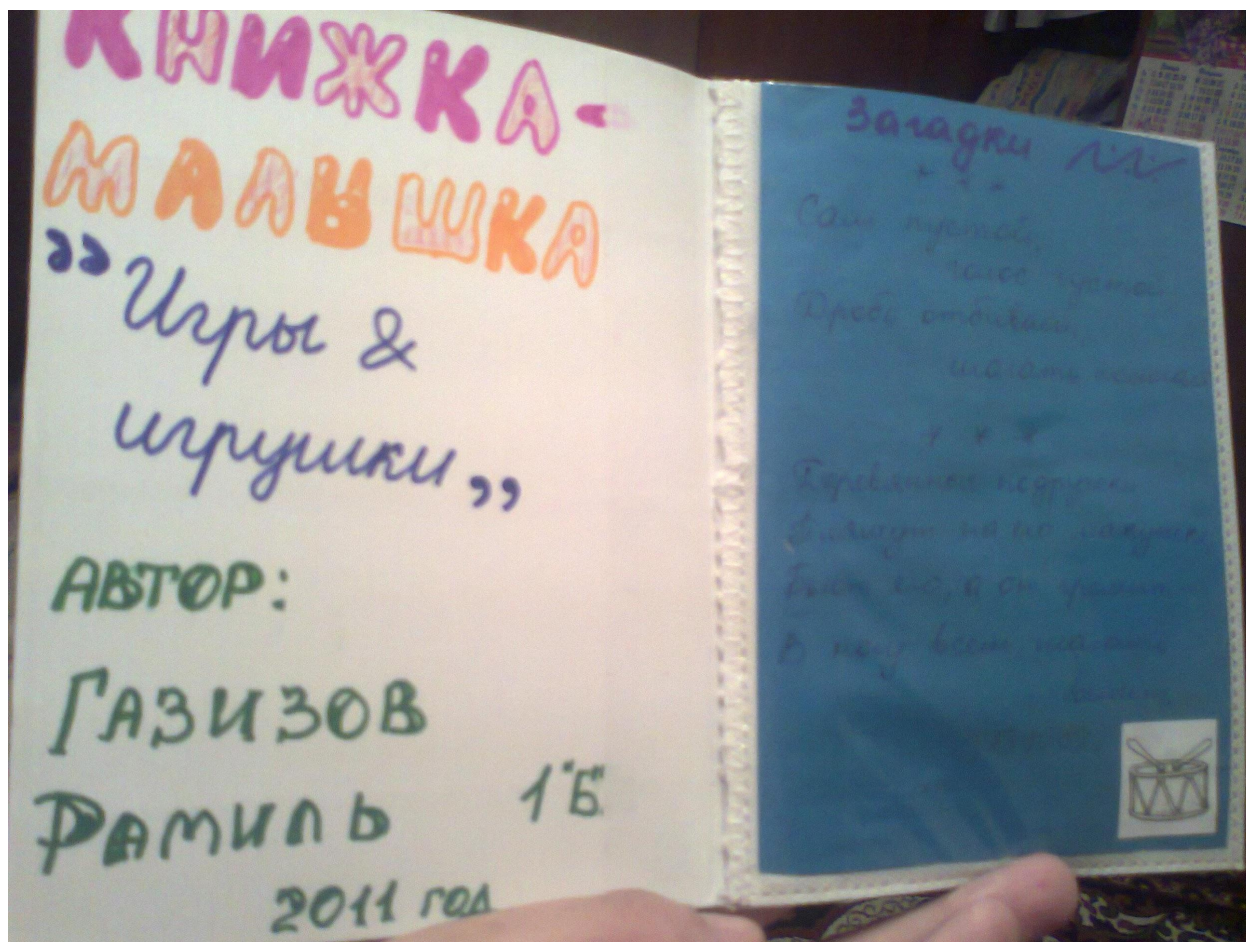 КНИЖКА-
МАЛЫШКА
„Игры &
игрушки„
АВТОР:
ГАЗИЗОВ
РАМИЛЬ 1"Б"
2011 год
Загадки
* * *
Сам пустой,
голос густой
Дробь отбивает,
шагать
* * *
Деревянные подружки
Пляшут на его макушке,
Бьют его, а он гремит
В ногу всем шагать
велит